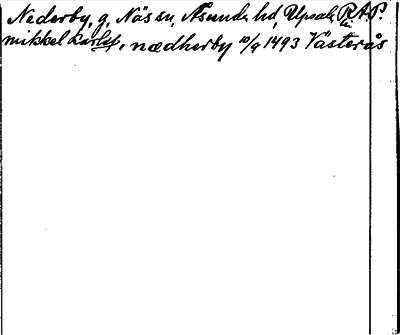 Nederby, g. Näs sn, Åsunda hd, Upsala R.A.P.
mikkel karls, nædherby 10/9 1493 Västerås